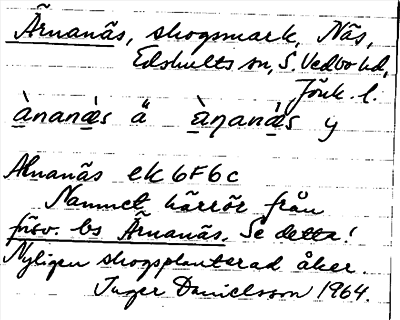 Ärnanäs, skogsmark, Näs,
Edshults sn, S. Vedbo hd,
Jönk. l.
ànanä̀s ä àṇanä̀s y
Alnanäs ek 6F6c
Namnet härrör från
försv. bs Ärnanäs. Se detta!
Nyligen skogsplanterad åker.
Inger Danielsson 1964.